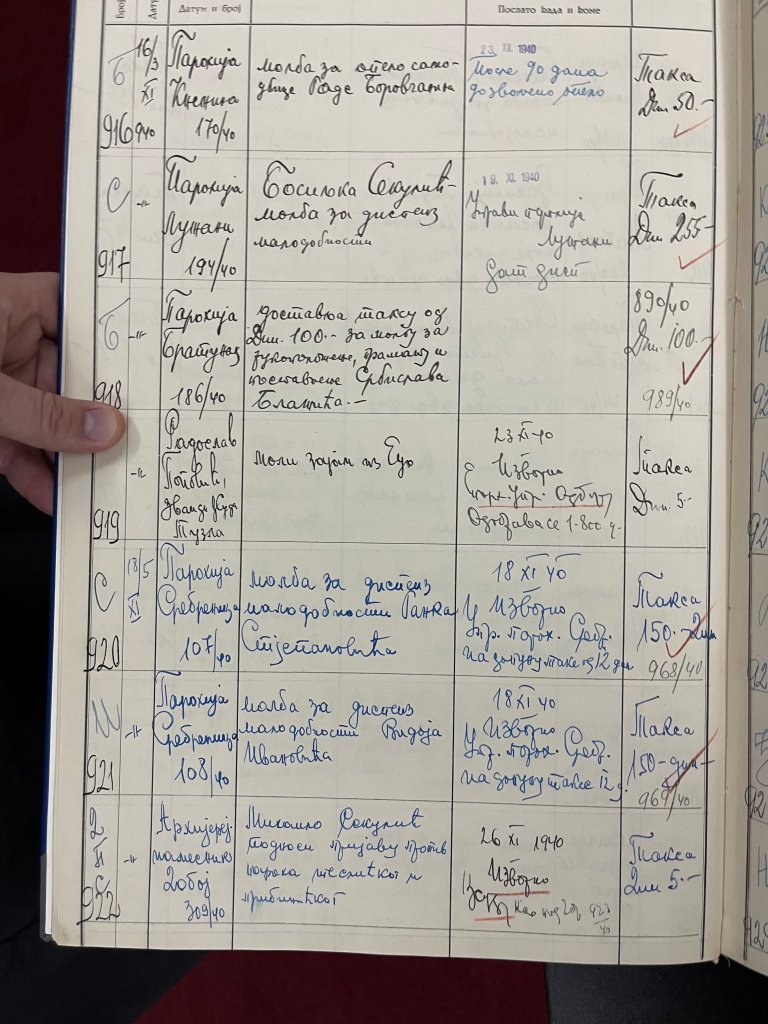 Број
Датум и број
Послато када и коме
Б
916
16/3
XI
940
Парохија
Кнежина
170/40
молба за опело само-
убице Раде Боровчанин
23. XII. 1940
После 90 дана
дозвољено опело
Такса
Дин. 50.-
С
917
-||-
Парохија
Лужани
194/40
Босиљка Секулић-
молба за диспенз
малодобности
19. XI. 1940
Управи парохије
Лужани
Дат дисп
Такса
Дин. 255-
Б
918
-||-
Парохија
Братунац
186/40
доставља таксу од
Дин. 100.- за молбу за
рукоположење, грамату и
постављење Србислава
890/40
Дин. 100.-
989/40
919
-||-
Радослав
Поповић,
Тузла
моли зајам из
23 XI 40
Изворно
Одбору
Одузима се
Такса
Дин. 5.-
С
920
18/5
XI
Парохија
Сребреница
107/40
молба за диспенз
малодобности Ранка
Стјепановића
18 XI 40
У Изворно
Упр. парох. Сребр.
на допуну таксе од 12 дин
Такса
150.- Дин
968/40
921
-||-
Парохија
Сребреница
108/40
молба за диспенз
малодобности Видоја
Ивановића
18 XI 40
У Изворно
Упр. парох. Сребр.
на допуну таксе 12 д.
Такса
150-дин-
969/40
922
-||-
Архијереј.
намесник
Добој
309/40
Михаило Секулић
подноси пријаву против
пароха теслићког и
прибинићког
26 XI 1940
Изворно
као под
923
40
Такса
Дин 5.-